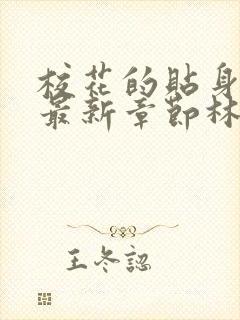 校花的貼身
最新章節林
王冬認